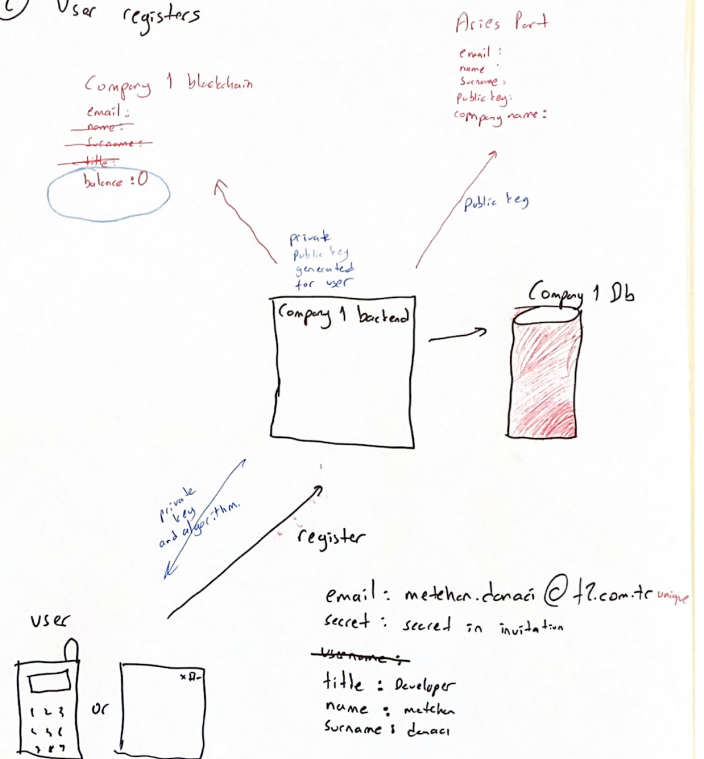 c) User registers
Company 1 blockchain
email :
name :
surname :
title :
balance : 0
Aries Part
email :
name :
Surname :
Public key:
company name :
private
Public key
generated
for user
Public key
Company 1 backend
Company 1 Db
private
key
and algorithm.
register
user
or
1 2 3
4 5 6
email : metehan.danaci @ t2.com.tr unique
secret : secret in invitation
Username :
title : Developer
name : metehan
Surname : danaci